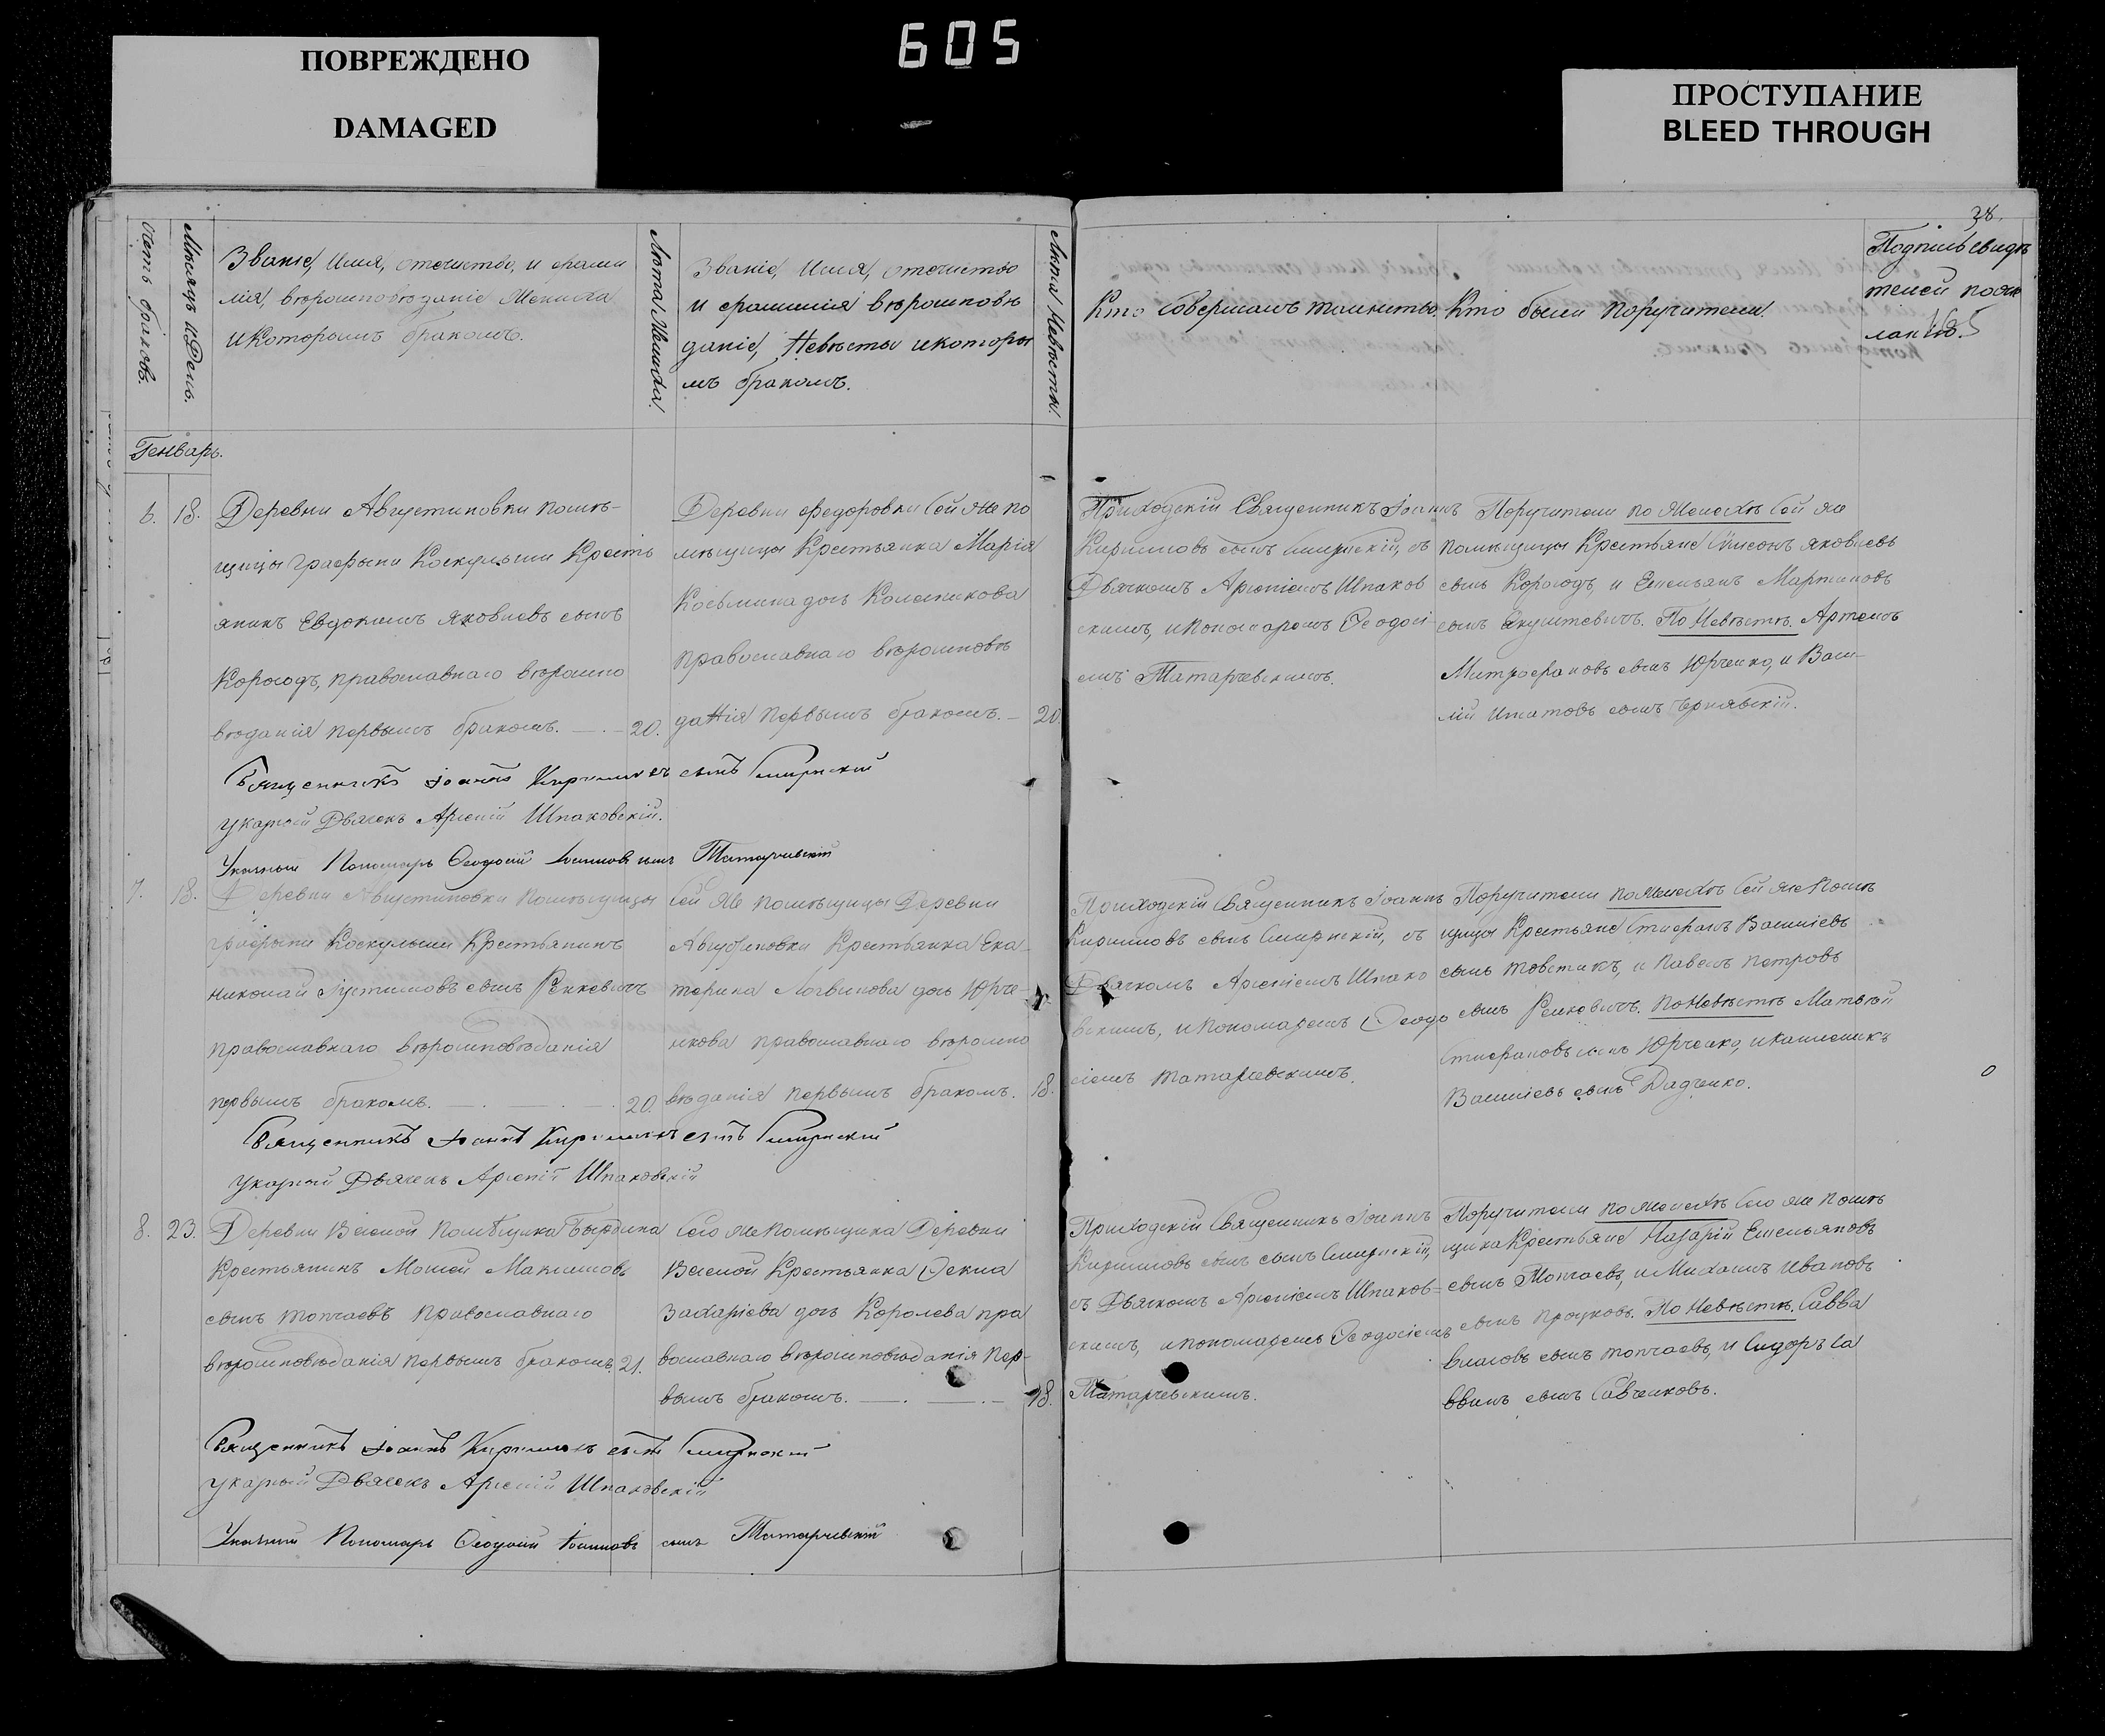 ПОВРЕЖДЕНО
DAMAGED
605
ПРОСТУПАНИЕ
BLEED THROUGH
38.
Счетъ браковъ.
Мѣсяцъ и День.
Званіе, Имя, отечество, и фами
лія, вѣроисповѣданіе Жениха
и которымъ бракомъ.
Лѣта Жениха.
Званіе, Имя, отечество
и фамилія вѣроисповѣ
даніе, Невѣсты и которы
мъ бракомъ.
Лѣта Невѣсты.
Кто совершалъ таинство.
Кто были поручители.
Подпись свидѣ
телей по же
ланію.
165
Генварь.
6. 18.
Деревни Августиновки помѣ-
щицы Графыни Коскулыши Кресть
янинъ Евдокимъ Яковлевъ сынъ
Корогодъ, православнаго вѣроиспо
вѣданія первымъ бракомъ. — 20.
Деревни Федоровки сей же по
мѣщицы Крестьянка Марія
Косьмина дочь Колесникова
православнаго вѣроисповѣ
данія первымъ бракомъ. — 20.
Приходскій Священникъ Іоаннъ
Кириловъ сынъ Смирнскій, съ
Дьячкомъ Арсеніемъ Шпаков
скимъ, и пономаремъ Ѳеодосі
емъ Татарчевскимъ.
Поручители по Женихѣ сей же
помѣщицы Крестьяне Симеонъ Яковлевъ
сынъ Корогодъ, и Емельянъ Мартиновъ
сынъ Якушевичъ. По Невѣстѣ. Артемъ
Митрофановъ сынъ Юрченко, и Васи-
лій Игнатовъ сынъ Чернявскій.
Священникъ Іоаннъ Кириловъ сынъ Смирнскій
Указный Дьячекъ Арсеній Шпаковскій.
Указный Пономарь Ѳеодосій Іоанновъ сынъ Татарчевскій
7. 18.
Деревни Августиновки помѣщицы
Графыни Коскулыши Крестьянинъ
Николай Іустиновъ сынъ Ренкевичъ
православнаго вѣроисповѣданія
первымъ бракомъ. — 20.
Сей же помѣщицы Деревни
Августиновки Крестьянка Ека-
терина Логвинова дочь Юрче-
нкова православнаго вѣроиспо
вѣданія первымъ бракомъ. 18.
Приходскій Священникъ Іоаннъ
Кириловъ сынъ Смирнскій, съ
Дьячкомъ Арсеніемъ Шпако
вскимъ, и пономаремъ Ѳеодо
сіемъ Татарчевскимъ.
Поручители по Женихѣ сей же помѣ
щицы Крестьяне Стефанъ Василіевъ
сынъ Товстикъ, и Павелъ Петровъ
сынъ Ренкевичъ. По Невѣстѣ Матвѣй
Стефановъ сынъ Юрченко, и Калленикъ
Василіевъ сынъ Дадченко.
Священникъ Іоаннъ Кириловъ сынъ Смирнскій
Указный Дьячекъ Арсеній Шпаковскій
8. 23.
Деревни Веселой Помѣщика Бырдина
Крестьянинъ Мойсей Максимовъ
сынъ Топчаевъ православнаго
вѣроисповѣданія первымъ бракомъ. 21.
Сего же помѣщика Деревни
Веселой Крестьянка Ѳекла
Захаріева дочь Королева пра
вославнаго вѣроисповѣданія пер-
вымъ бракомъ. — 18.
Приходскій Священникъ Іоаннъ
Кириловъ сынъ сынъ Смирнскій,
съ Дьячкомъ Арсеніемъ Шпаков=
скимъ, и пономаремъ Ѳеодосіемъ
Татарчевскимъ.
Поручители по Женихѣ сего же помѣ
щика Крестьяне Назарій Емельяновъ
сынъ Топчаевъ, и Михаилъ Ивановъ
сынъ Процковъ. По Невѣстѣ. Савва
Власовъ сынъ Топчаевъ, и Сидоръ Са
ввинъ сынъ Савченковъ.
Священникъ Іоаннъ Кириловъ сынъ Смирнскій
Указный Дьячекъ Арсеній Шпаковскій
Указный Пономарь Ѳеодосій Іоанновъ сынъ Татарчевскій